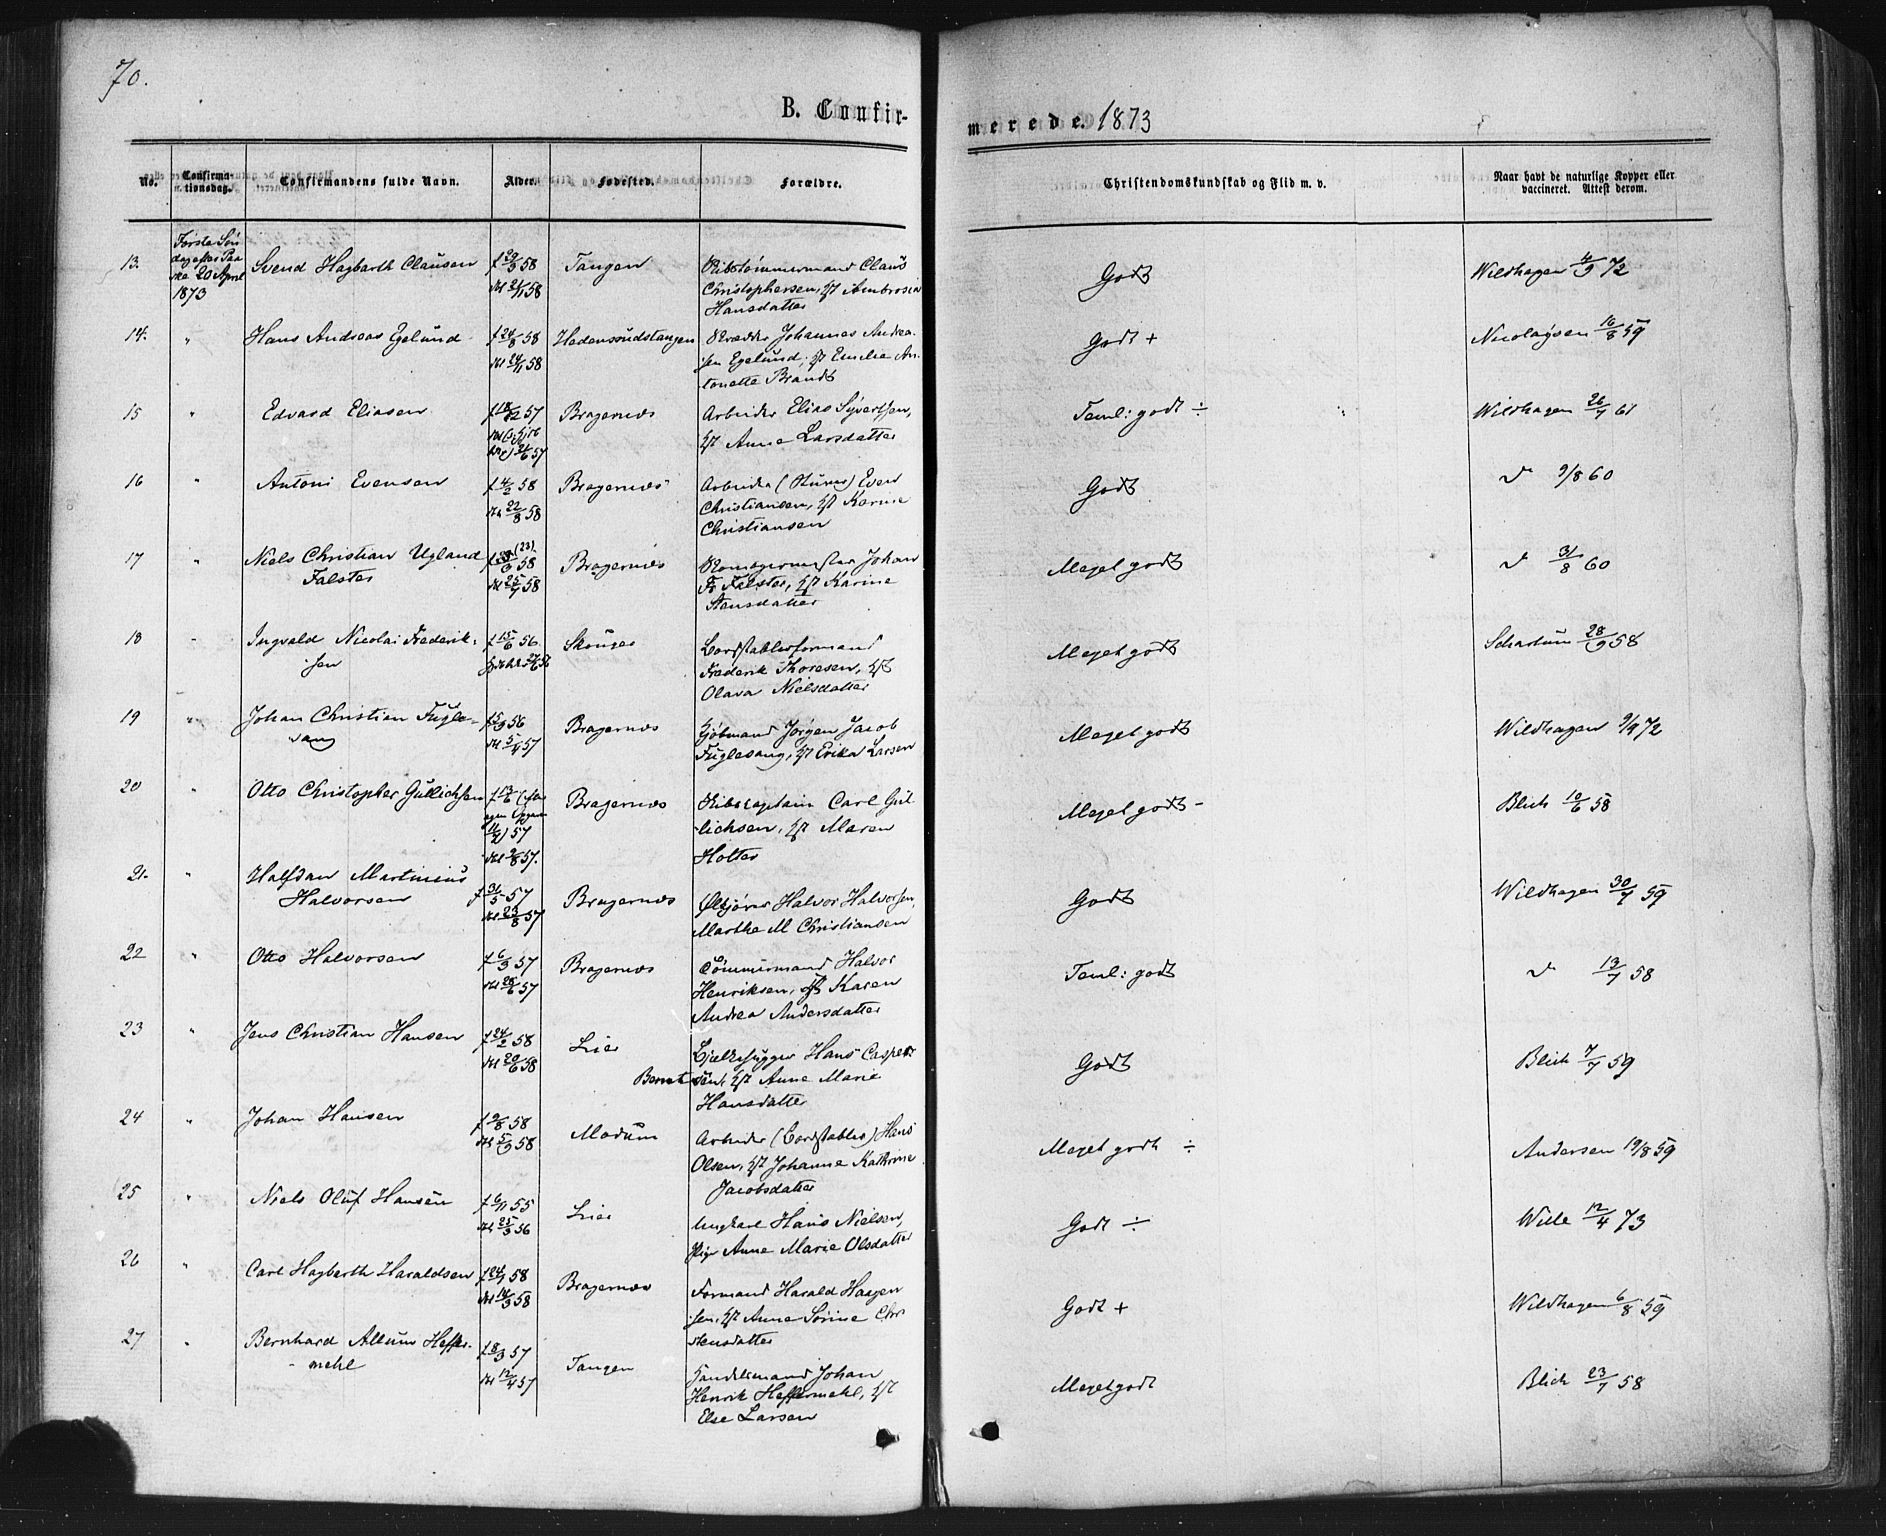 70.
B. Confir-
merede. 1873
No.
Confirma-
tionsdag.
Confirmandens fulde Navn.
Alder.
Fødested.
Forældre.
Christendomskundskab og Flid m. v.
Naar havt de naturlige Kopper eller
vaccineret. Attest derom.
13. Første Søn
dag efter Paa
ske 20 April
1873
Svend Hagbarth Clausen
f 29/3 58
Tangen
Skibstømmermand Claus
Christophersen, Hst Ambrosia
Hansdatter
Godt
Wildhagen 4/9 72
14. " Hans Andreas Egelund
f 24/8 58
dbt 24/11 58
Hedensrudstangen
Skrædder Johannes Andrea-
sen Egelund, Hst Emilie An-
tonette Brandt
Godt +
Nicolaysen 16/8 59
15 " Edvard Eliasen
f 18/12 57
Bragernæs
Arbeider Elias Syvertsen,
Hst Anne Larsdatter
Teml: godt ÷
Wildhagen 26/7 61
16 " Antoni Evensen
f 4/2 58
22/8 58
Bragernæs
Arbeider Even
Christiansen, Hst Karine
Christiansen
Godt
d 9/8 60
17 " Niels Christian Ugland
Falster
(23)
58
dbt 25/7 58
Bragernæs
Johan
Fr Falster, Hst Karine
Stensdatter
Meget godt
d 31/8 60
18 - Ingvald Nicolai Frederik-
sen
f 15/6 56
Skouger
Bordstablerformand
Frederik Thoresen, Hst
Olava Nielsdatter
Meget godt
Schartum 28/9 58
19 " Johan Christian Fugle-
sang
f 5/3 56
dbt 5/4 57
Bragernæs
Kjøbmand Jørgen Jacob
Fuglesang, Hst Erika Larsen
Meget godt
Wildhagen 9/9 72
20 " Otto Christopher Gullichsen
f 13/6
57
dbt 9/8 57.
Bragernæs
Skibscaptain Carl Gul-
lichsen, Hst Maren
Holter
Meget godt -
Blich 10/6 58
21. " Halfdan Martinius
Halvorsen
f 31/5 57
dbt 23/8 57
Bragernæs
Halvor Halvorsen,
Marthe M Christiansen
Godt
Wildhagen 30/7 59
22 " Otto Halvorsen
f 6/3 57
dbt 28/6 57
Bragernæs
Tømmermand Halvor
Henriksen, Hst Karen
Andrea Andersdatter
Teml: godt
d 13/7 58
23 " Jens Christian Hansen
f 24/2 58
dbt 20/6 58
Lier
Bjelkehugger Hans Casper
Berntsen, Hst Anne Marie
Hansdatter
Godt
Blich 7/7 59
24 " Johan Hansen
f 9/8 58
dbt 5/9 58
Modum
Arbeider (Bordstabler) Hans
Olsen, Hst Johanne Kathrine
Jacobsdatter
Meget godt ÷
Andersen 19/8 59
25 " Niels Oluf Hansen
f 6/11 55
dbt 25/3 56
Lier
Ungkarl Hans Nielsen,
Pige Anne Marie Olsdatter
Godt ÷
Wille 12/4 73
26 " Carl Hagbarth Haraldsen
f 24/1 58
dbt 14/3 58
Bragernæs
Formand Harald Hansen
Hst Anne Sørine Chri
stensdatter
Godt +
Wildhagen 6/8 59
27 " Bernhard Allum Heffer-
mehl
f 8/3 57
dbt 12/4 57
Tangen
Handelsmand Johan
Henrik Heffermehl, Hst
Else Larsen
Meget godt
Blich 23/7 58